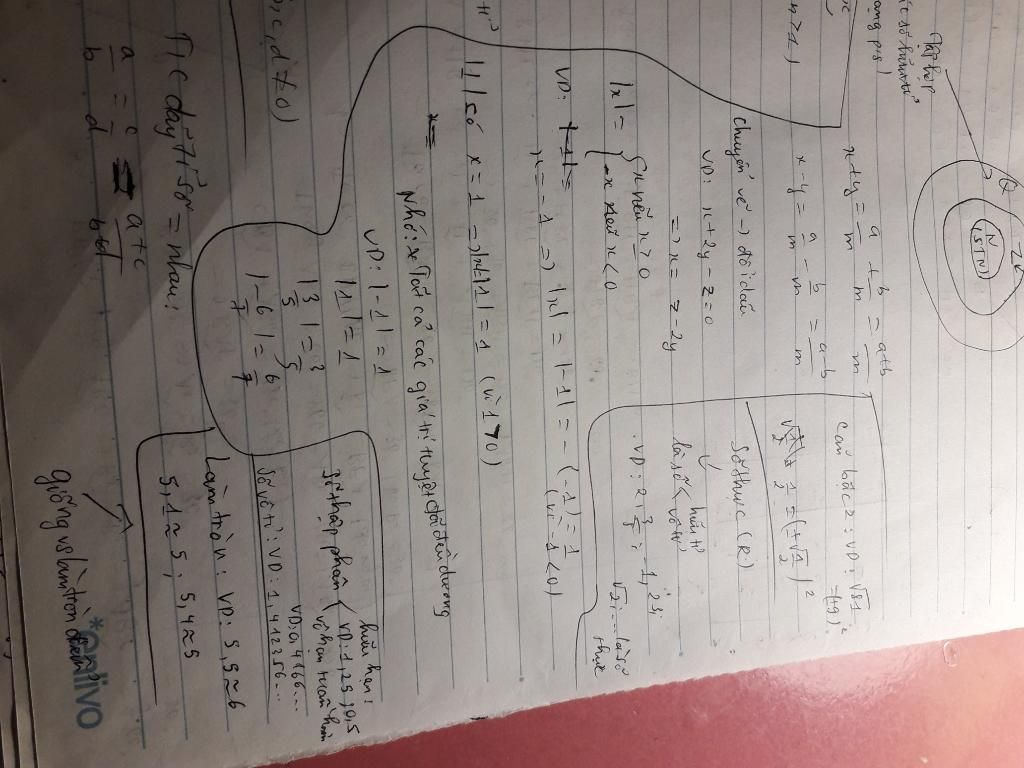 Tập hợp
Q
Z
N
x+y = a/m + b/m = a+b/m
x-y = a/m - b/m = a-b/m
Chuyển vế -> đổi dấu
VD: x+2y-z=0
=> x = z-2y
|x| = { x nếu x ≥ 0
-x nếu x<0
VD:
x=-1 => |x| = |-1| = -(-1) = 1
(vì -1<0)
Số x=1 => |1| = 1 (vì 1>0)
Nhớ: Tất cả các giá trị tuyệt đối đều dương
VD: |-1|=1
|1|=1
|3/5|=3/5
|-6/7|=6/7
Căn bậc 2: VD: √81
Số thực (R)
là số < hữu tỉ
vô tỉ
VD: 2; 3/5; -1,23;
√2;... là số
thực
Số thập phân < hữu hạn:
VD: 1,25; 0,5
vô hạn tuần hoàn
VD: 0,4666...
Số vô tỉ: VD: 1,412356...
Làm tròn: VD: 5,5≈6
5,1≈5; 5,4≈5
giống vs làm tròn điểm
b, c, d ≠ 0)
T/c dãy tỉ số = nhau:
a/b = c/d = a+c/b+d
*enlivo